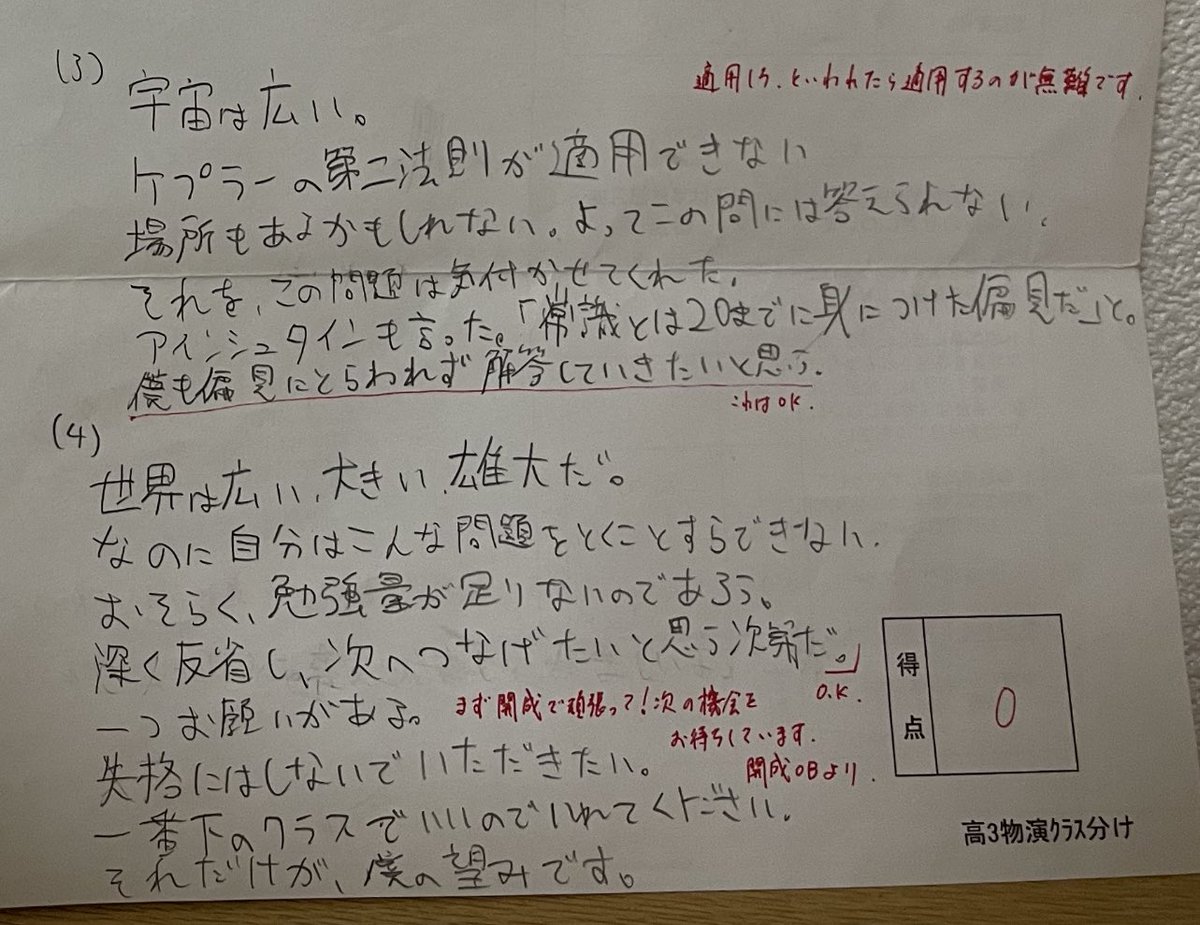 (3)
宇宙は広い。
適用しろ、といわれたら適用するのが無難です.
ケプラーの第二法則が適用できない
場所もあるかもしれない。よってこの問には答えられない.
それを、この問題は気付かせてくれた.
アインシュタインも言った。「常識とは20までに身につけた偏見だ」と。
僕も偏見にとらわれず解答していきたいと思う.
これはOK.
(4)
世界は広い、大きい、雄大だ。
なのに自分はこんな問題をとくことすらできない.
おそらく、勉強量が足りないのであろう。
深く反省し、次へつなげたいと思う次第だ。
O.K.
一つお願いがある。
まず開成で頑張って!次の機会を
お待ちしています.
開成OBより.
失格にはしないでいただきたい。
一番下のクラスでいいのでいれてください.
それだけが、僕の望みです。
得点
0
高3物演クラス分け